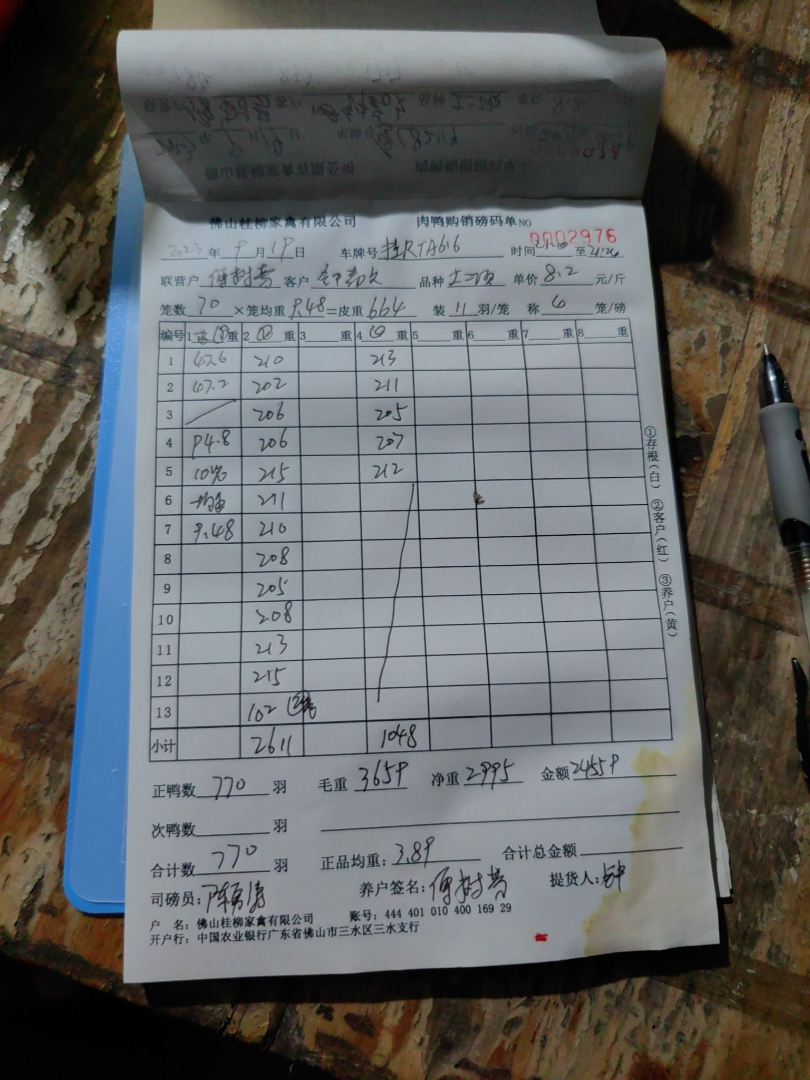 佛山桂柳家禽有限公司 肉鸭购销磅码单 NO 0002976
2023年9月19日 车牌号 桂RTA616 时间 至 21:26
联营户 客户 品种 土二项 单价 8.2 元/斤
笼数 70 ×笼均重 9.48 =皮重 664 装 11 羽/笼 称 6 笼/磅
编号 1 皮① 重 2 ① 重 3 重 4 ① 重 5 重 6 重 7 重 8 重
1 47.6 210 213
2 47.2 202 211
3 206 205
4 94.8 206 207
5 10笼 215 212
6 均重 211
7 9.48 210
8 208
9 205
10 208
11 213
12 215
13 102
小计 2611 1048
①存根(白) ②客户(红) ③养户(黄)
正鸭数 770 羽 毛重 3659 净重 2995 金额 24559
次鸭数 羽
合计数 770 羽 正品均重: 3.89 合计总金额
司磅员: 养户签名: 提货人:
户 名: 佛山桂柳家禽有限公司 账号: 444 401 010 400 169 29
开户行: 中国农业银行广东省佛山市三水区三水支行